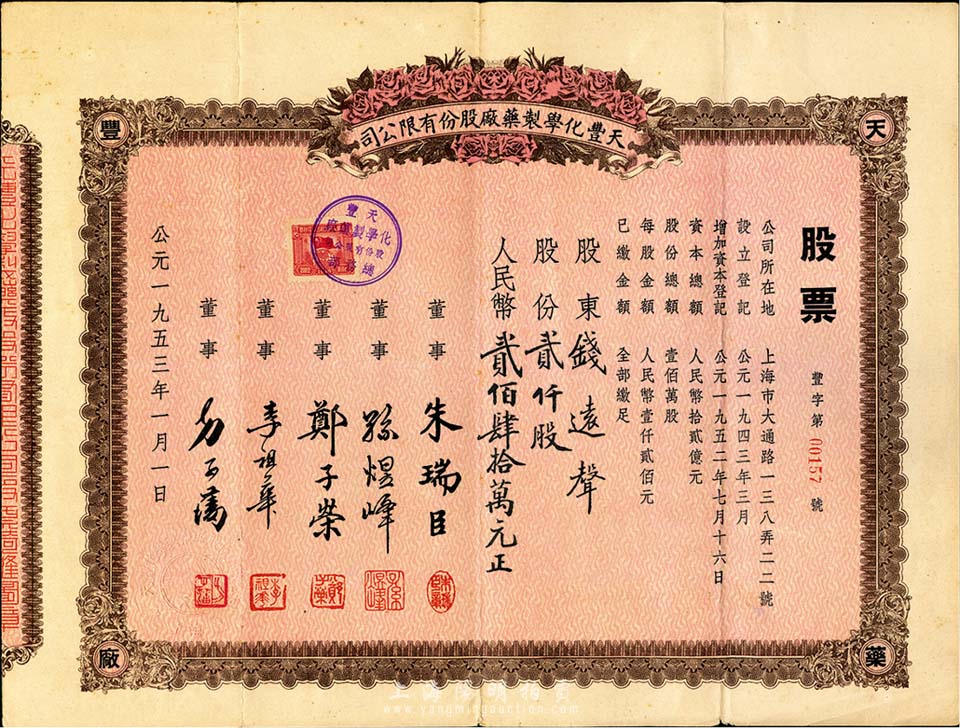 天豐化學製藥廠股份有限公司
天
豐
藥
廠
股票
豐字第00157號
公司所在地 上海市大通路一三八弄二二號
設立登記 公元一九四三年三月
增加資本登記 公元一九五二年七月十六日
資本總額 人民幣拾貳億元
股份總額 壹佰萬股
每股金額 人民幣壹仟貳佰元
已繳金額 全部繳足
股東錢遠聲
股份貳仟股
人民幣貳佰肆拾萬元正
董事 朱瑞臣
董事 孫煜峰
董事 鄭子榮
董事 李祖華
董事
公元一九五三年一月一日
天豐
化學製藥廠
股份有限公
上海陽明拍賣
www.yangmingauction.com